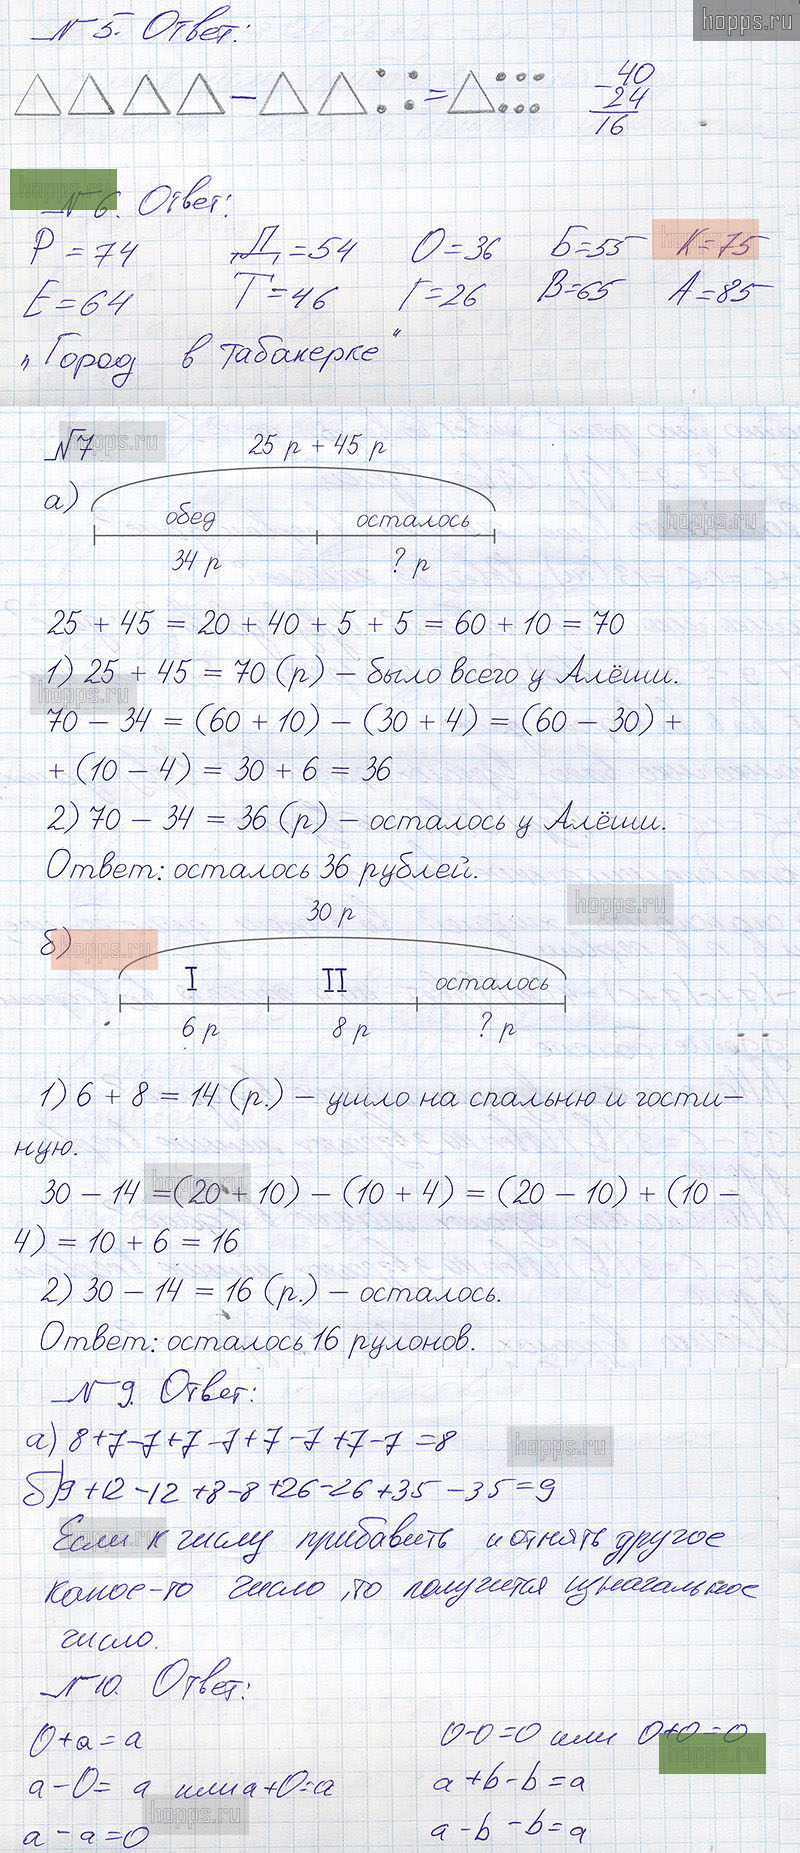 hopps.ru
№ 5. Ответ:
△△△△ – △△:: = △::: 
40
- 24
16
hopps.ru
№ 6. Ответ:
Р = 74 Д = 54 О = 36 Б = 55 К = 75
Е = 64 Т = 46 Г = 26 В = 65 А = 85
„Город в табакерке“
№7 hopps.ru 25 р + 45 р
а)
обед осталось
hopps.ru
34 р ? р
25 + 45 = 20 + 40 + 5 + 5 = 60 + 10 = 70
1) 25 + 45 = 70 (р) – было всего у Алёши.
hopps.ru
70 – 34 = (60 + 10) – (30 + 4) = (60 – 30) +
+ (10 – 4) = 30 + 6 = 36
2) 70 – 34 = 36 (р) – осталось у Алёши.
Ответ: осталось 36 рублей.
hopps.ru
30 р
б) hopps.ru
I II осталось
6 р 8 р ? р
1) 6 + 8 = 14 (р.) – ушло на спальню и гости–
ную.
hopps.ru
30 – 14 = (20 + 10) – (10 + 4) = (20 – 10) + (10 –
4) = 10 + 6 = 16
2) 30 – 14 = 16 (р.) – осталось.
Ответ: осталось 16 рулонов.
№ 9. Ответ:
а) 8+7-7+7-7+7-7+7-7=8
hopps.ru
б) 9+12-12+8-8+26-26+35-35=9
Если к числу прибавить и отнять другое
hopps.ru
какое-то число, то получится изначальное
число.
№ 10. Ответ:
0+a=a 0-0=0 или 0+0=0
hopps.ru
a-0=a или a+0=a a+b-b=a
hopps.ru
a-a=0 a-b-b=a